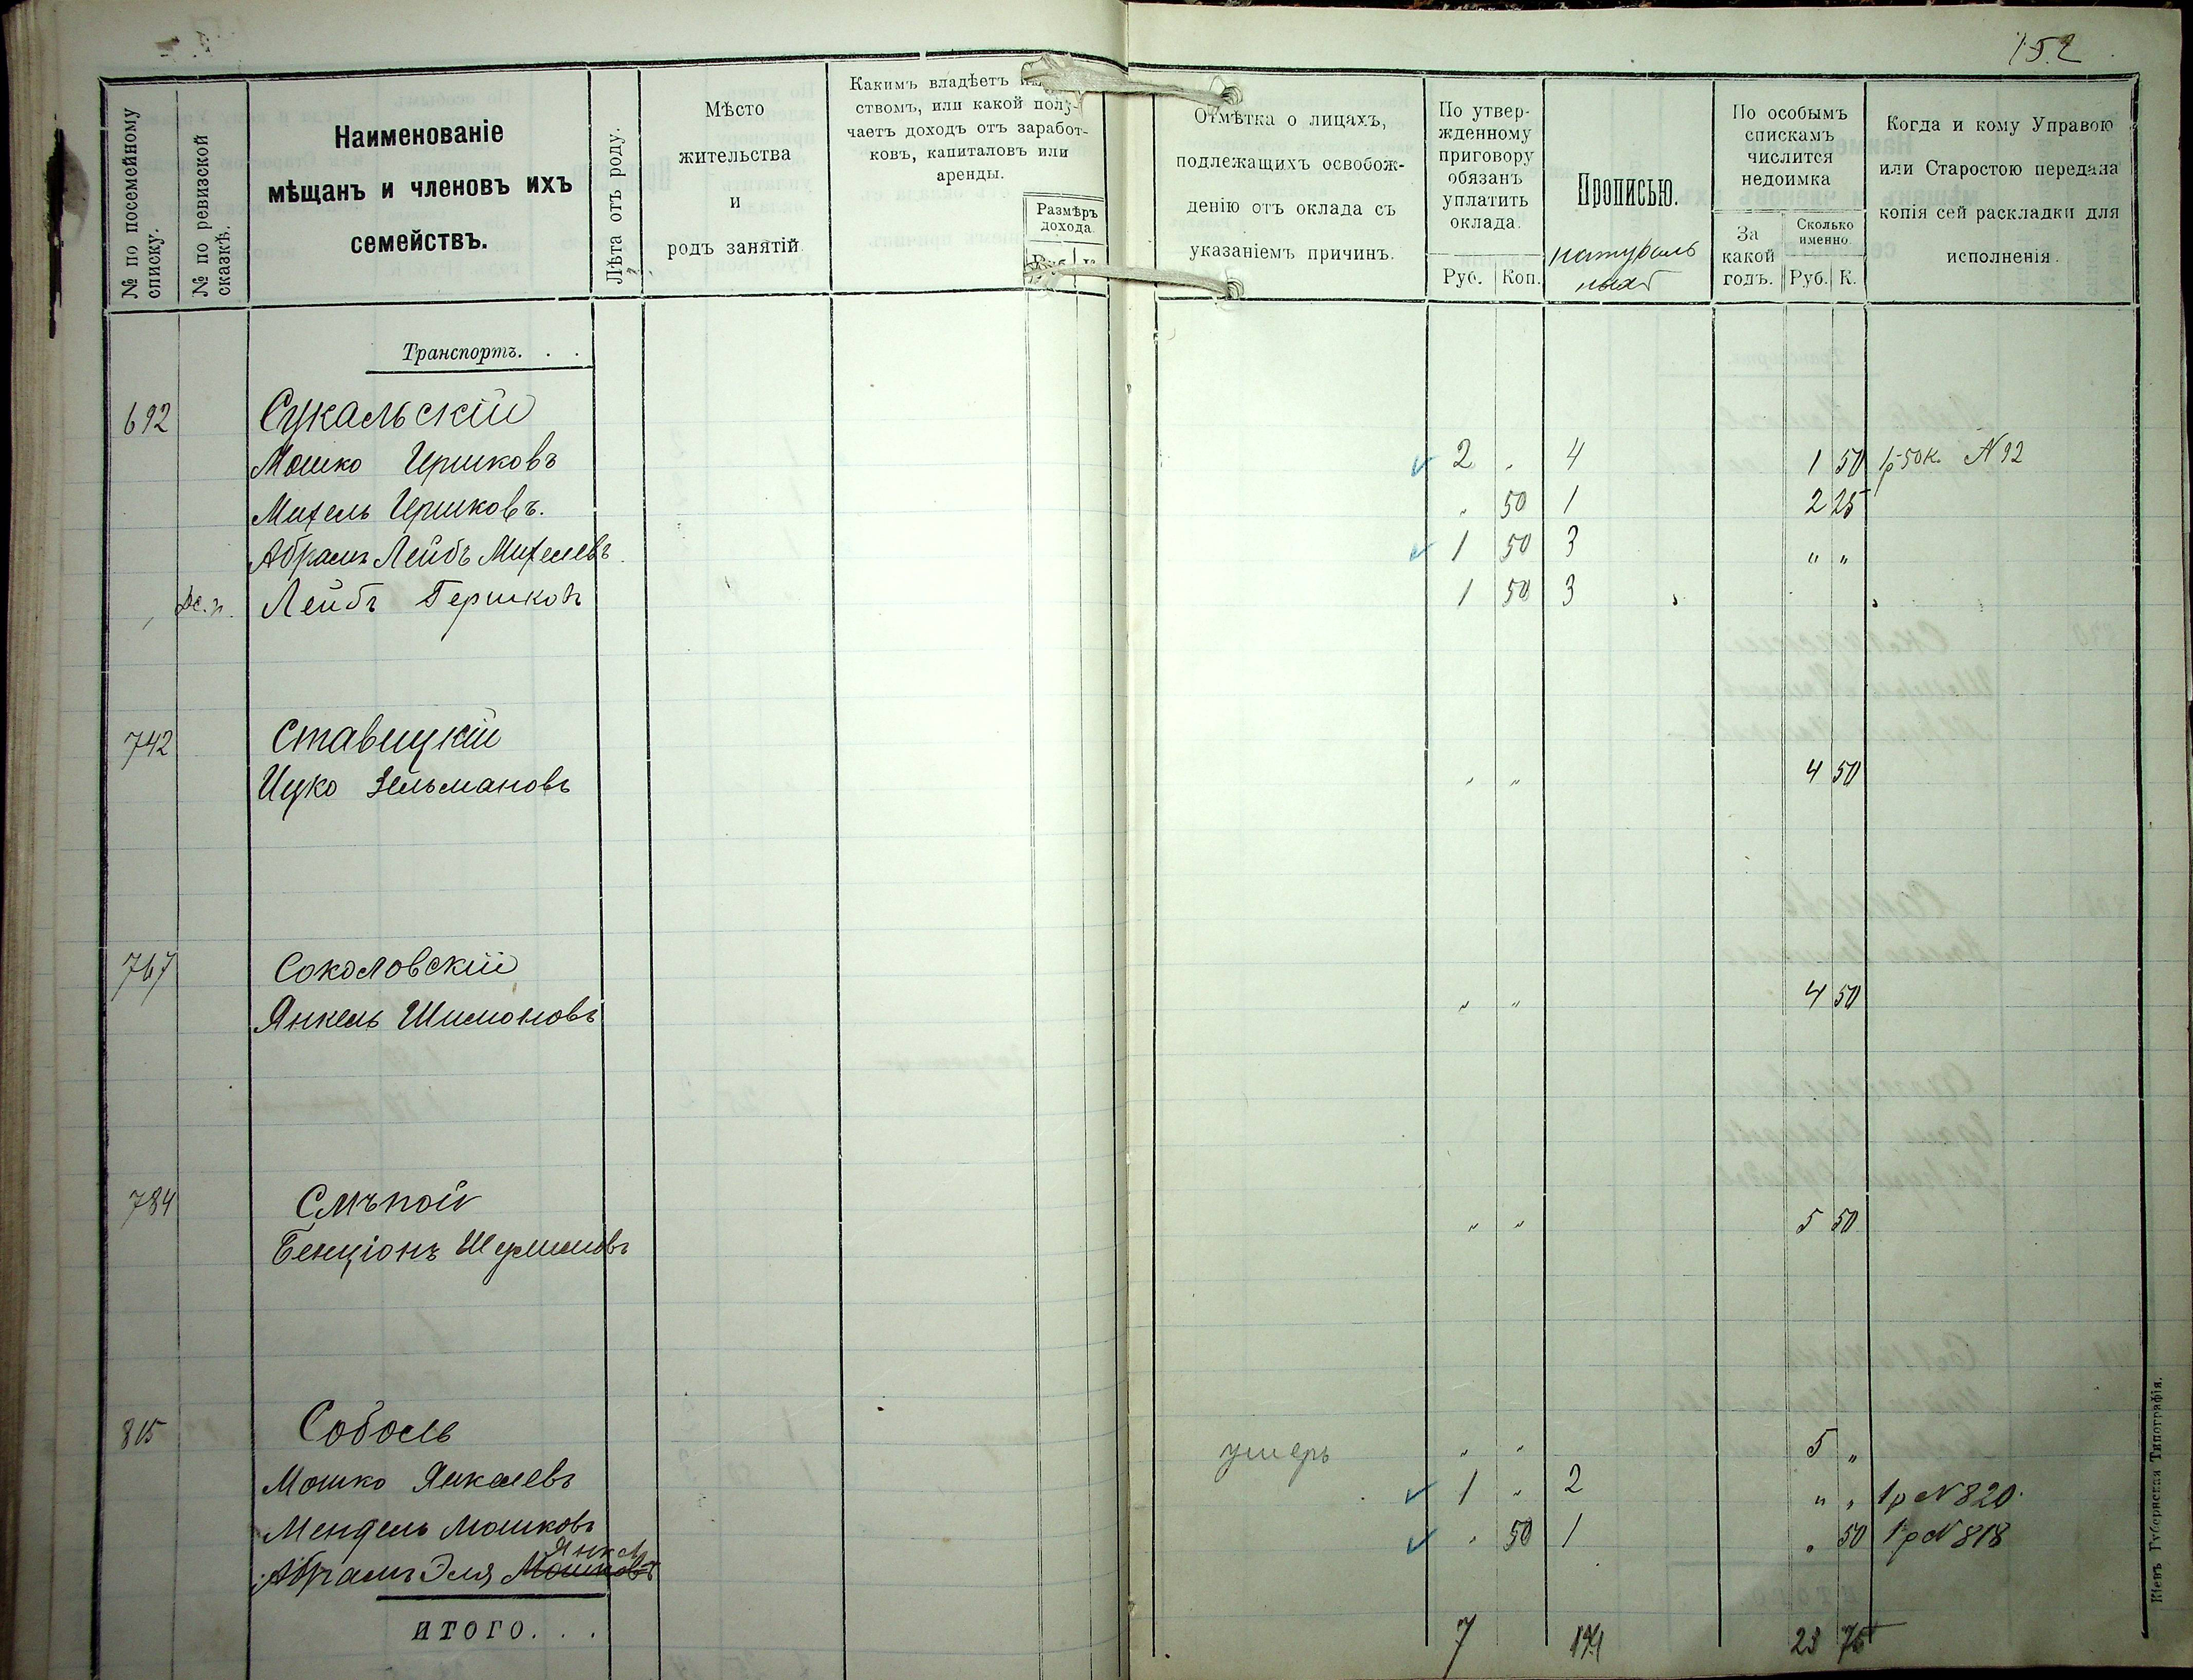 152
№ по посемейному списку.
№ по ревизской сказкѣ.
Наименованіе
мѣщанъ и членовъ ихъ
семействъ.
Лѣта отъ роду.
Мѣсто
жительства
и
родъ занятій
Какимъ владѣетъ
ствомъ, или какой полу-
чаетъ доходъ отъ заработ-
ковъ, капиталовъ или
аренды.
Размѣръ
дохода.
Руб. К.
Отмѣтка о лицахъ,
подлежащихъ освобож-
денію отъ оклада съ
указаніемъ причинъ.
По утвер-
жденному
приговору
обязанъ
уплатить
оклада.
Руб. Коп.
Прописью.
натураль
ныхъ
По особымъ
спискамъ
числится
недоимка
За
какой
годъ.
Сколько
именно.
Руб. К.
Когда и кому Управою
или Старостою передана
копія сей раскладки для
исполненія.
Транспортъ. . .
692 Сукальскій
Мошко Ицковъ 2 „ 4 1 50 1р50к. N 92
Михель Ершковъ. „ 50 1 2 25
Абрамъ Лейбъ Михелевъ 1 50 3 „ „
Лейбъ Гершковъ 1 50 3
742 Ставицкій
Ицко Зельмановъ „ „ 4 50
767 Соколовскій
Янкель Шимоновъ „ „ 4 50
784 Слѣпой
Бенціонъ „ „ 5 50
815 Соболь
Мошко Янкелевъ умеръ „ „ 5 „
Мендель Мошковъ 1 „ 2 „ „ 1р N 820.
Янкел
Абрамъ Эля Мошковъ „ 50 1 „ 50 1р N 818
ИТОГО. . . 7 14 23 75
Кіевъ Губернская Типографія.